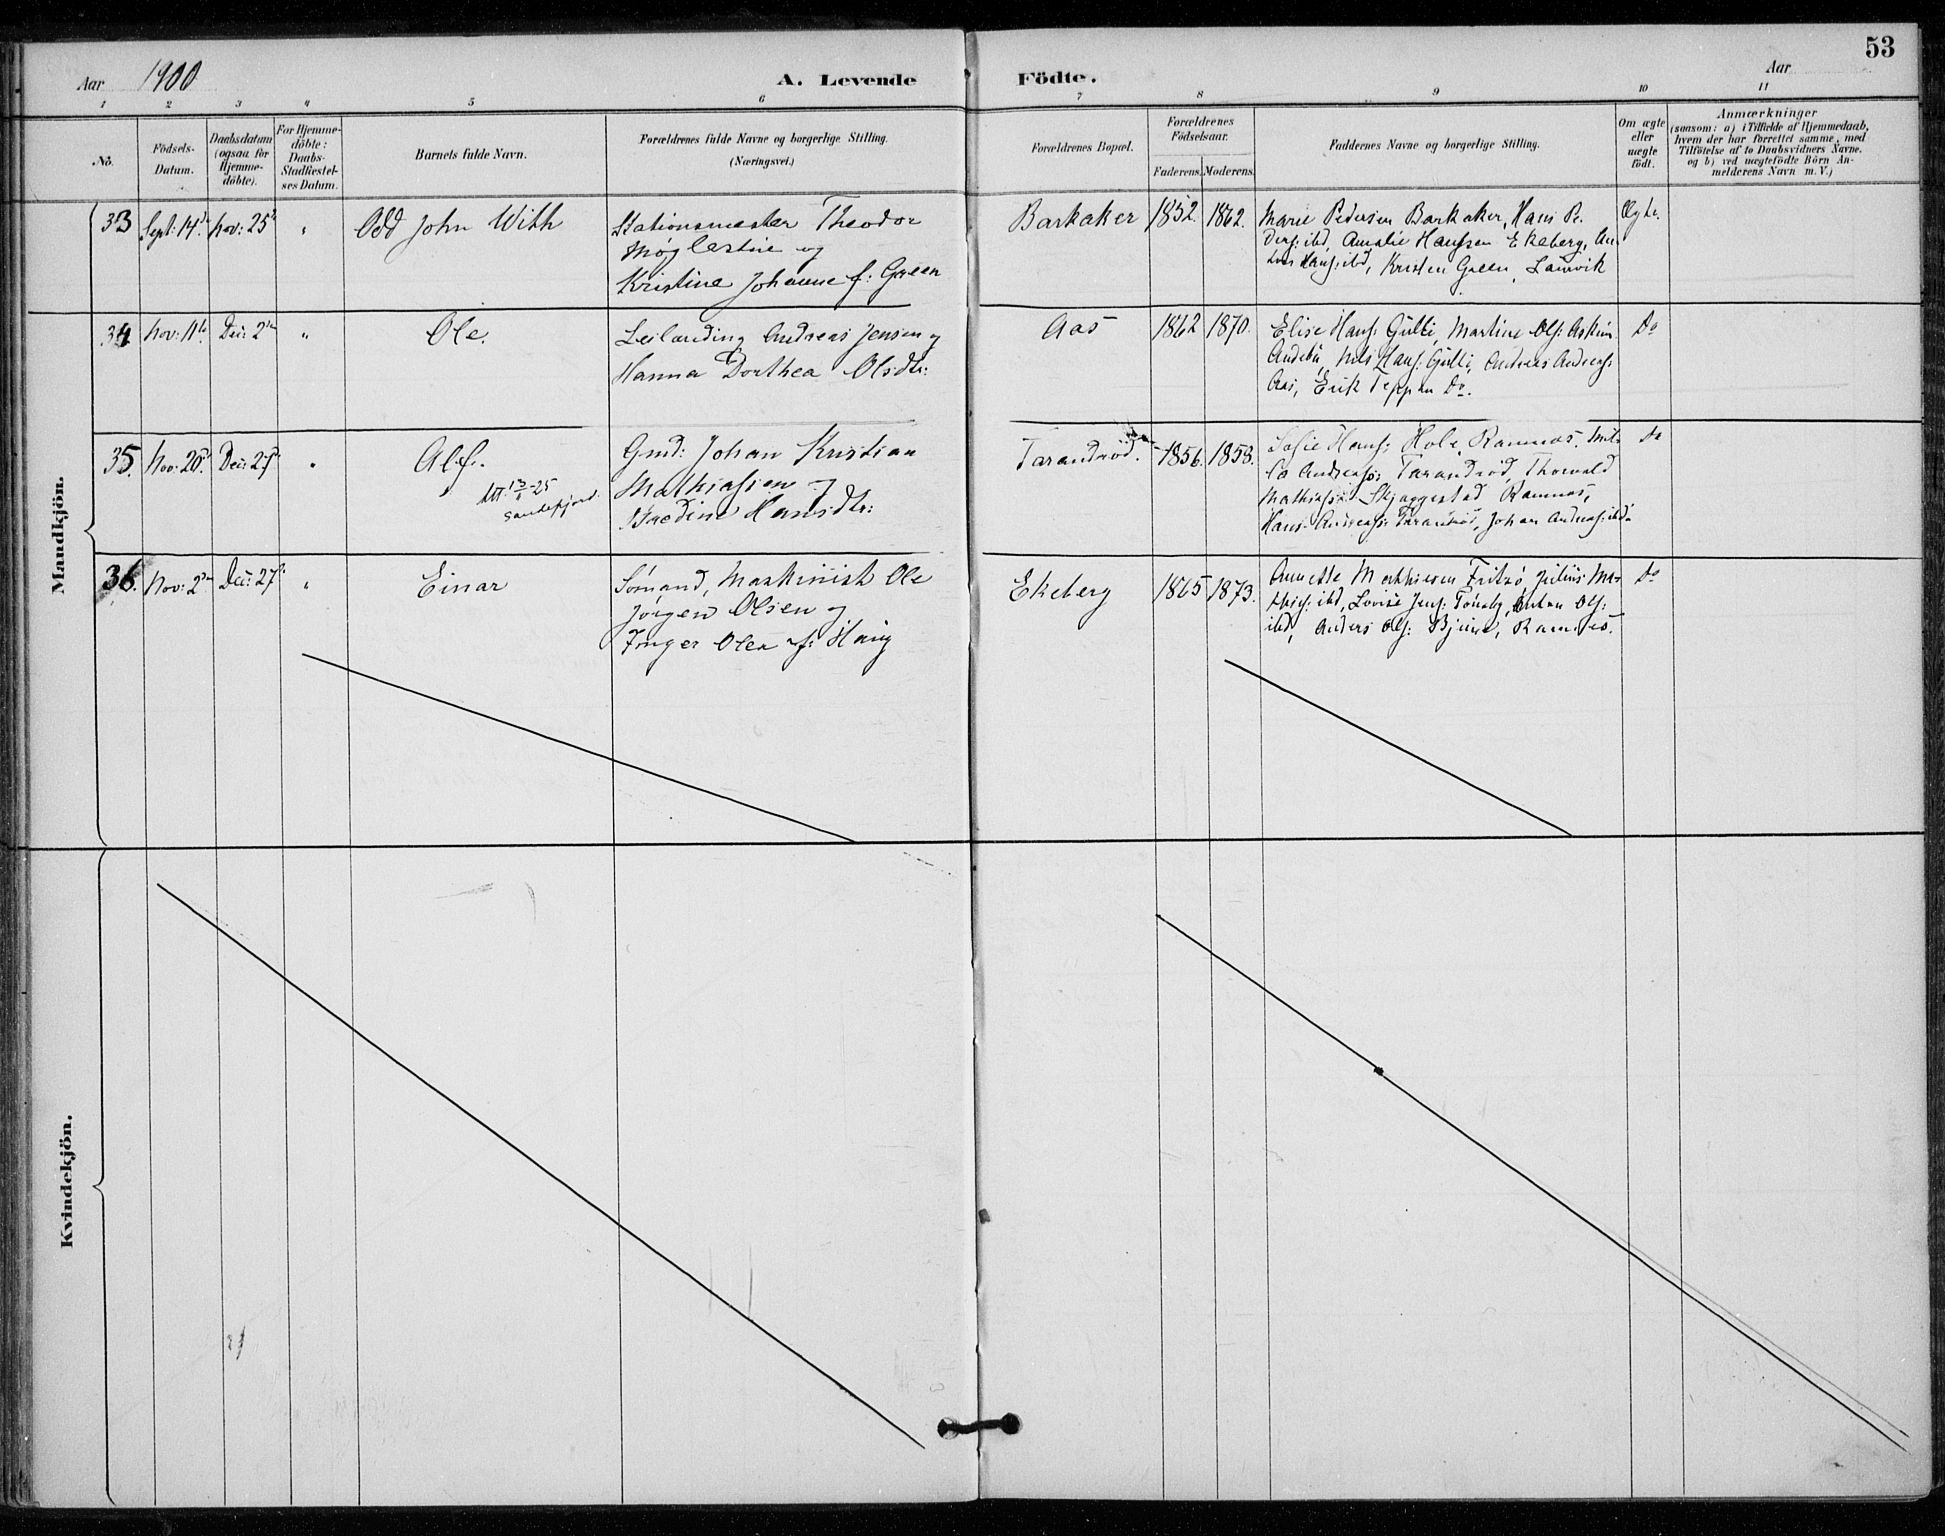 53
Aar 1900 A. Levende Födte. Aar
1 2 3 4 5 6 7 8 9 10 11
No.
Födsels-Datum.
Daabsdatum (ogsaa for Hjemme-döbte).
For Hjemme-döbte: Daabs-Stadfæstel-ses Datum.
Barnets fulde Navn.
Forældrenes fulde Navne og borgerlige Stilling.
(Næringsvei.)
Forældrenes Bopæl.
Forældrenes Födselsaar.
Faderens. Moderens.
Faddernes Navne og borgerlige Stilling.
Om ægte eller uægte födt.
Anmærkninger
(saasom: a) i Tilfælde af Hjemmedaab,
hvem der har forrettet samme, med
Tilföielse af to Daabsvidners Navne.
og b) ved uægtefödte Börn An-
melderens Navn m. V.)
Mandkjön.
33 Sept: 14de Nov: 25de " Odd John With
Stationsmester Theodor
Møglestue og
Kristine Johanne f: Green
Barkaker 1852. 1862.
Marie Pedersen Barkaker, Hans Pe-
ders: ibd, Amalie Hanssen Ekeberg, An-
ton Hans: ibd, Kristen Green, Laurvik
Ægte.
34 Nov: 11te Dec: 2den " Ole.
Leilænding Andreas Jensen og
Hanna Dorthea Olsdtr:
Aas 1862 1870.
Elise Hans: Gulli, Martine Ols: Askim
Andebu, Nils Hans: Gulli, Andreas Andreas:
Aas, Erik Teppen Do.
Do
35. Nov: 20de Dec: 27de " Alf.
utt. 13/1-25
Sandefjord.
Gmd: Johan Kristian
Mathiassen og
Hansdtr:
Tarandrød. 1856. 1858.
Sofie Hans: Holt, Ramnæs.
Andreas: Tarandrød, Thorvald
Mathiass: Skjæggestad Ramnæs,
Hans Andreas: Tarandrød, Johan Andreas: ibd.
Do
36. Nov: 2den Dec: 27de " Einar
Sømand, Maskinist Ole
Jørgen Olsen og
Inger Olea f: Haug
Ekeberg 1865 1873.
Annette Mathiesen Fritzø, Julius Ma-
thies: ibd, Lovise Jens: Tönsbg, Anton Ols:
ibd, Anders Ols: Bjune, Ramnæs.
Do
Kvindekjön.